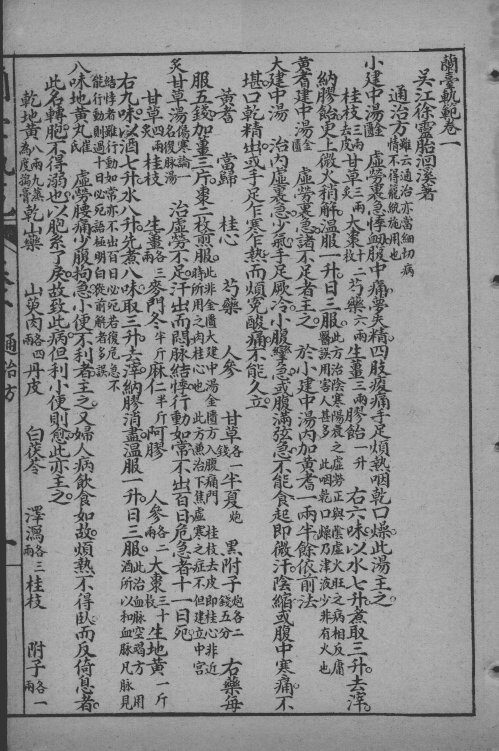 蘭臺軌範卷一
吳江徐靈胎洄溪著
通治方 雖云通治亦當細切病情不得籠統施用也
小建中湯 金匱 虛勞裏急悸衄腹中痛夢失精四肢痠痛手足煩熱咽乾口燥此湯主之
桂枝 三兩去皮 甘草 三兩炙 大棗 十二枚 芍藥 六兩 生薑 三兩 膠飴 一升 右六味以水七升煮取三升去滓
納膠飴更上微火稍解溫服一升日三服 此方治陰寒陽衰之虛勞正與陰虛火旺之病相反庸醫誤用害人甚多 此咽乾口燥乃津液少非有火也
黃耆建中湯 金匱 虛勞裏急諸不足者主之 於小建中湯內加黃耆一兩半餘依前法
大建中湯 治內虛裏急少氣手足厥冷小腹攣急或腹滿弦急不能食起即微汗陰縮或腹中寒痛不
堪口乾精出或手足乍寒乍熱而煩寃酸痛不能久立
黃耆 當歸 桂心 芍藥 人參 甘草 各一錢 半夏 炮 黑附子 炮各二錢五分 右藥每
服五錢加薑三片棗二枚煎服 此非金匱大建中湯金匱方入腹痛門 桂枝去皮即桂心非近時所用之肉桂心也 此方兼治下焦虛寒之症不但建立中宮
炙甘草湯 傷寒論一名復脉湯 治虛勞不足汗出而悶脉結悸行動如常不出百日危急者十一日死
甘草 四兩炙 桂枝 生薑 各三兩 麥門冬 半斤 麻仁 半斤 阿膠 人參 各二兩 大棗 三十枚 生地黃 一斤
右九味以酒七升水八升先煮八味取三升去滓納膠消盡溫服一升日三服 此治血脉空竭方用酒所以和血脉凡脉見結悸者雖行動如常亦不出百日必死若復危急不能行動則過十日必死語極明白從前解者多誤
八味地黃丸 崔氏 虛勞腰痛少腹拘急小便不利者主之又婦人病飲食如故煩熱不得臥而反倚息者
此名轉胞不得溺也以胞系了戾故致此病但利小便則愈此亦主之
乾地黃 八兩九蒸為度搗膏 乾山藥 山萸肉 各四兩 丹皮 白茯苓 澤瀉 各三兩 桂枝 附子 各一兩
通治方
一